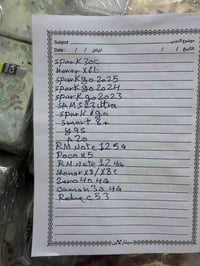 Subject
موضوع الدرس
Date: / /
التاريخ / /
spark 30c
Honor x6b
spark go 2025
spark go 2024
spark go 2023
SAMS23 ultra
spark 8go
smart 8+
y9s
A20
RM note 12 5G
Poco x5
RM note 12 4G
Honor x8/x8c
Zero 40 4G
camon 30 4G
Redme C53